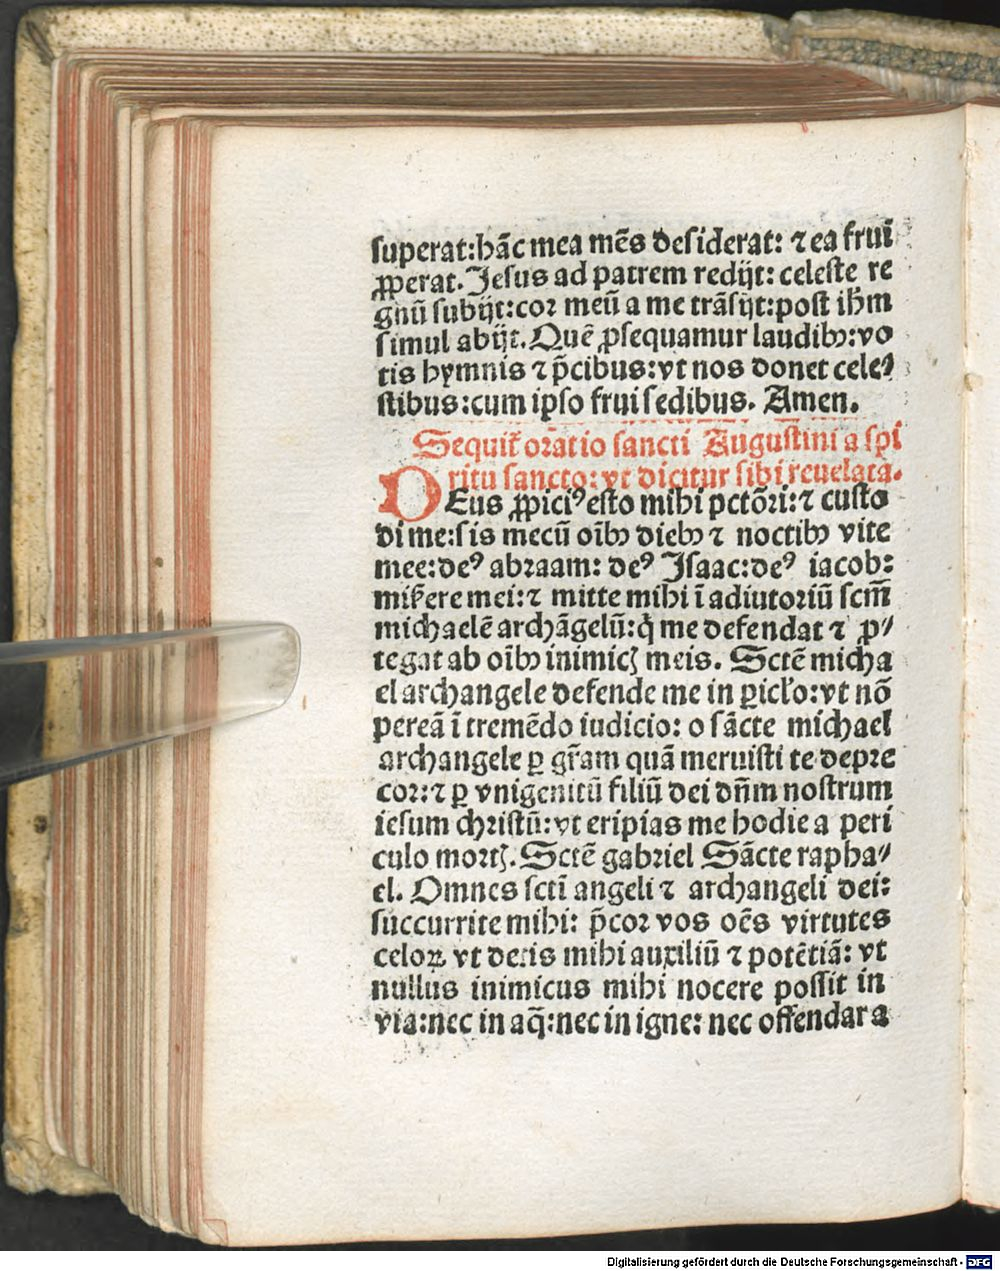 superat:hāc mea mēs desiderat: ⁊ ea frui
ꝓperat. Jesus ad patrem redijt: celeste re
gnū subijt:cor meū a me trāsijt:post ihm̄
simul abijt. Quē ꝓsequamur laudibꝫ:vo
tis hymnis ⁊ p̄cibus:vt nos donet cele⸗
stibus:cum ipso frui sedibus. Amen.
Sequit᷑ oratio sancti Augustini a spi
ritu sancto: vt dicitur sibi reuelata.
DEus ꝓpiciꝰ esto mihi pctōri: ⁊ custo
di me:sis mecū oībꝫ diebꝫ ⁊ noctibꝫ vite
mee:deꝰ abraam: deꝰ Jsaac:deꝰ iacob:
mis̄ere mei: ⁊ mitte mihi ī adiutoriū scm̄
michaelē archāgelū:q̇ me defendat ⁊ ꝓ⸗
tegat ab oībꝫ inimicꝭ meis. Sctē micha
el archangele defende me in ꝑicl'o:vt nō
pereā ī tremēdo iudicio: o sācte michael
archangele ꝑ gr̄am quā meruisti te depre
cor: ⁊ ꝑ vnigenitū filiū dei dn̄m nostrum
iesum christū:vt eripias me hodie a peri
culo mortꝭ. Sctē gabriel Sācte rapha⸗
el. Omnes sctī angeli ⁊ archangeli dei:
succurrite mihi: p̄cor vos oēs virtutes
celoꝝ vt detis mihi auxiliū ⁊ potētiā: vt
nullus inimicus mihi nocere possit in
via:nec in aq̄:nec in igne: nec offendar a
Digitalisierung gefördert durch die Deutsche Forschungsgemeinschaft - DFG